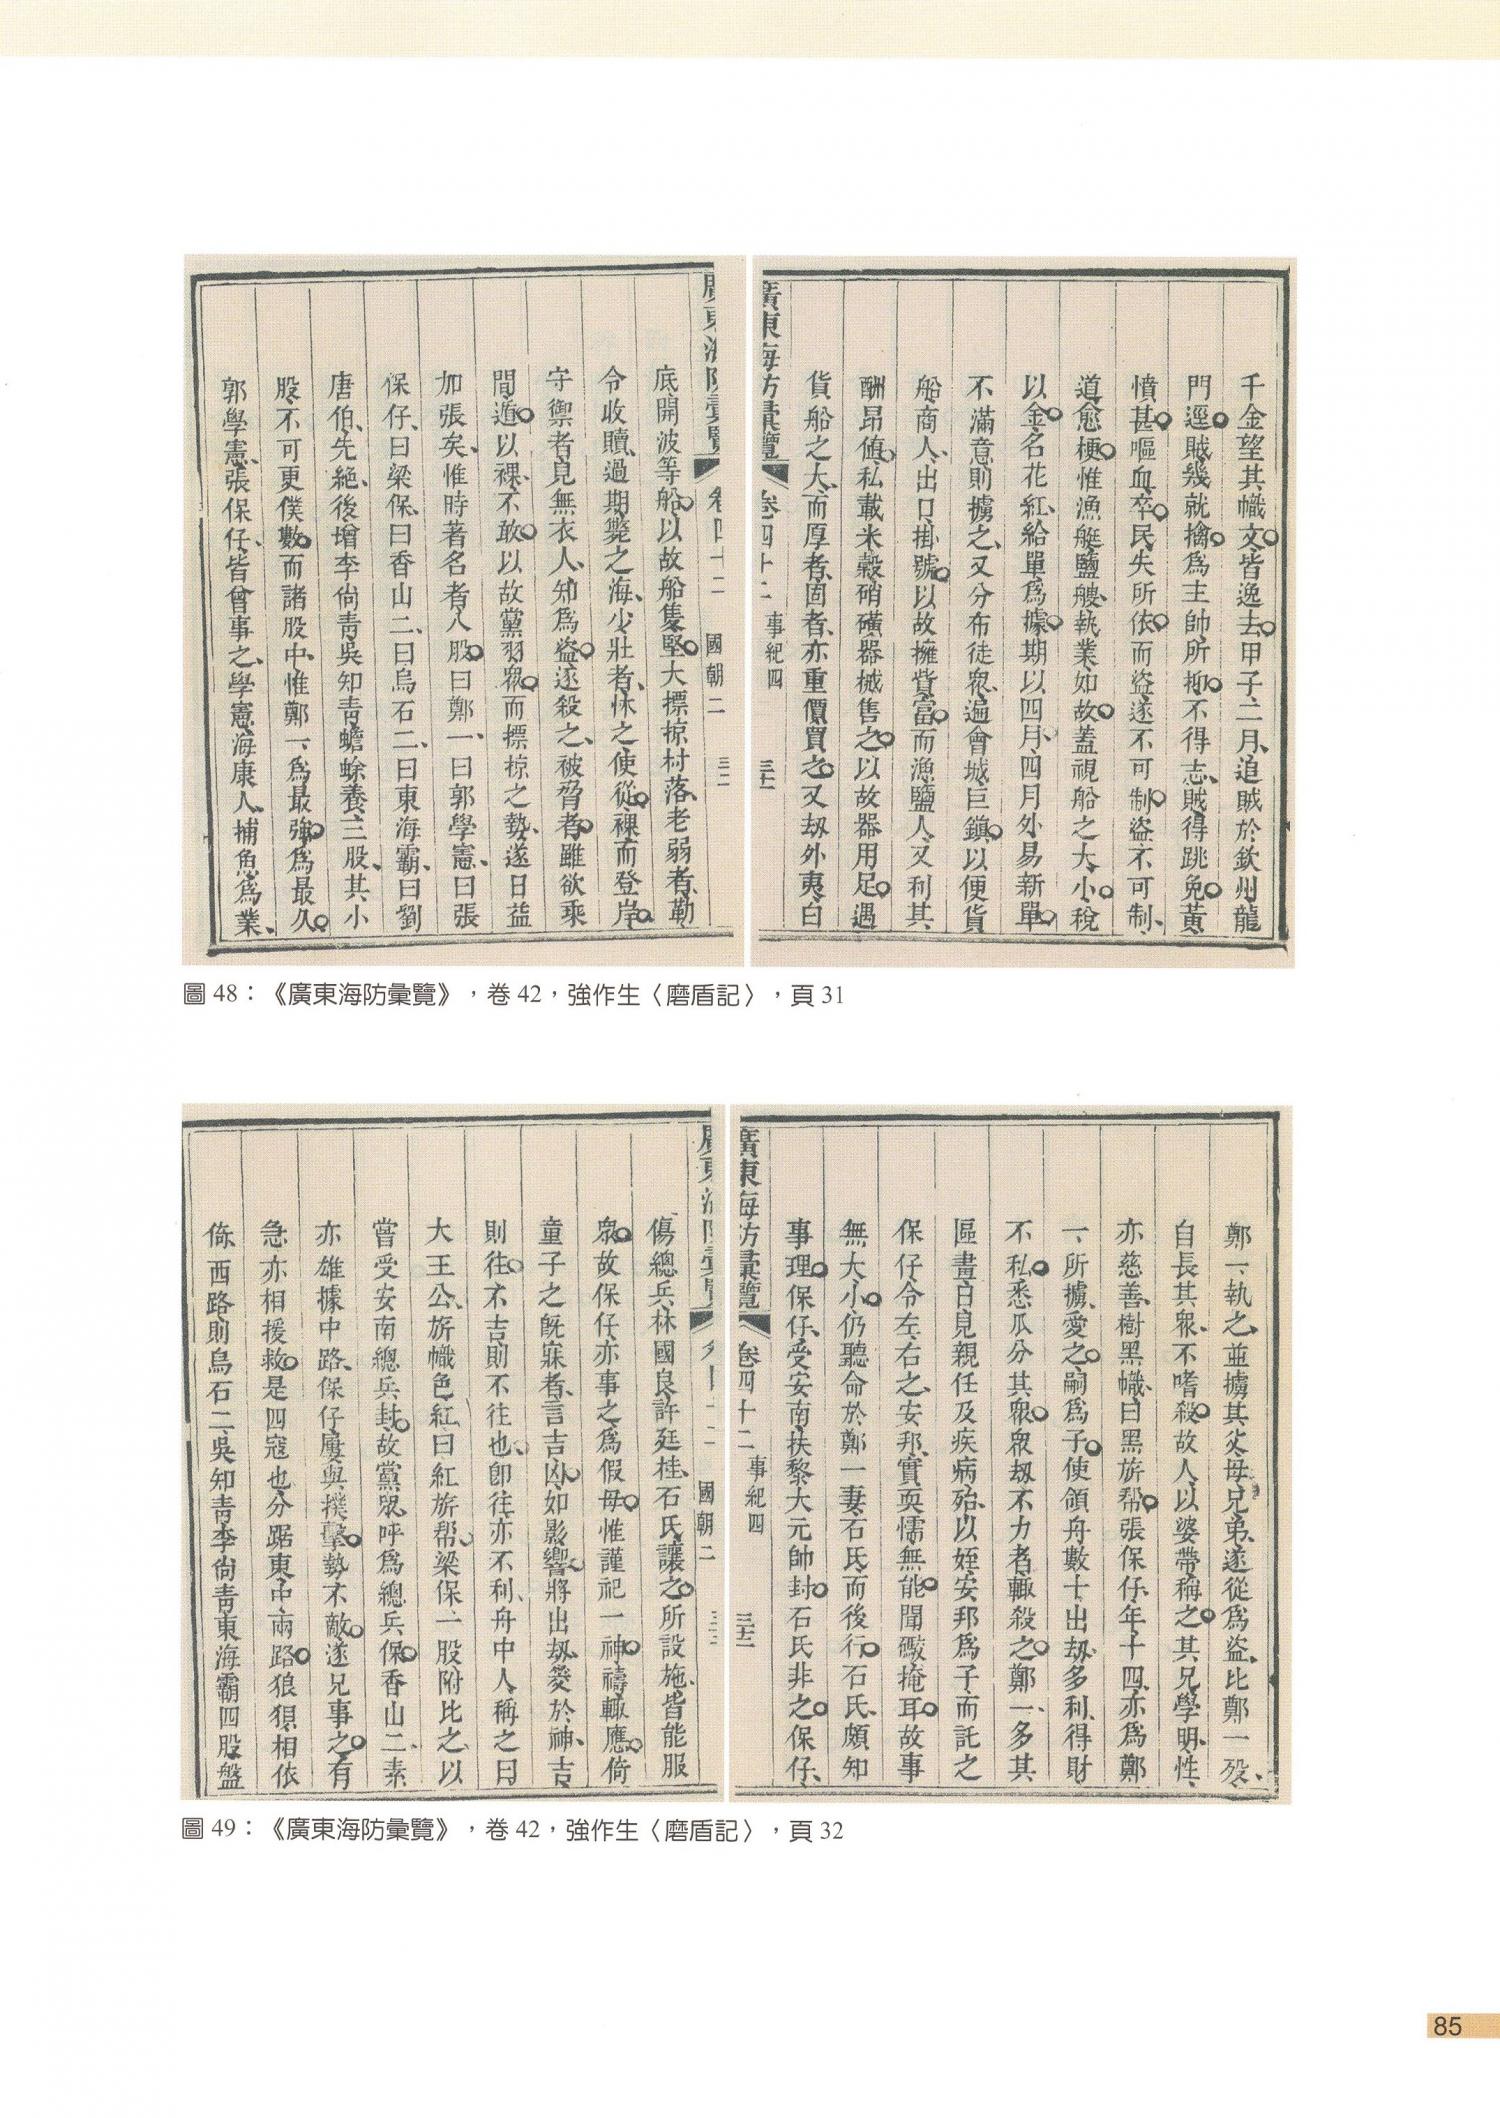 千金望其幟文皆逸去甲子二月追賊於欽州龍
門逕賊幾就擒爲主帥所抑不得志賊得跳免黃
憤甚嘔血卒民失所依而盜遂不可制盜不可制
道愈梗惟漁艇鹽艘執業如故蓋視船之大小稅
以金名花紅給單爲據期以四月四月外易新單
不滿意則擄之又分布徒眾遍會城巨鎮以便貨
船商人出口掛號以故擁貲富而漁鹽人又利其
酬昂値私載米榖硝磺器械售之以故器用足遇
貨船之大而厚者固者亦重價買之又劫外夷白
廣東海防彙覽 卷四十二 事紀四 三十一
廣東海防彙覽 卷四十二 國朝二
底開波等船以故船隻堅大摽掠村落老弱者勒
令收贖過期斃之海少壯者怵之使從裸而登岸
守禦者見無衣人知爲盜遂殺之被脅者雖欲乘
間遁以裸不敢以故黨羽眾而摽掠之勢遂日益
加張矣惟時著名者八股曰鄭一曰郭學憲曰張
保仔曰梁保曰香山二曰烏石二曰東海霸曰劉
唐伯先絶後增李尙靑吳知靑蟾蜍養三股其小
股不可更僕數而諸股中惟鄭一爲最強爲最久
郭學憲張保仔皆曾事之學憲海康人捕魚爲業
圖 48：《廣東海防彙覽》，卷 42，強作生〈磨盾記〉，頁 31
鄭一執之並擄其父母兄弟遂從爲盜比鄭一歿
自長其眾不嗜殺故人以婆帶稱之其兄學明性
亦慈善樹黑幟曰黑旂幇張保仔年十四亦爲鄭
一所擄愛之嗣爲子使領舟數十出劫多利得財
不私悉瓜分其眾眾劫不力者輒殺之鄭一多其
區畫日見親任及疾病殆以姪安邦爲子而託之
保仔令左右之安邦實耎懦無能聞礮掩耳故事
無大小仍聽命於鄭一妻石氏而後行石氏頗知
事理保仔受安南扶黎大元帥封石氏非之保仔
廣東海防彙覽 卷四十二 事紀四 三十二
廣東海防彙覽 國朝二
傷總兵林國良許廷桂石氏讓之所設施皆能服
眾故保仔亦事之爲假母惟謹祀一神禱輒應倚
童子之旣寐者言吉凶如影響將出劫筊於神吉
則往不吉則不往也卽往亦不利舟中人稱之曰
大王公旂幟色紅曰紅旂帮梁保一股附比之以
嘗受安南總兵封故黨眾呼爲總兵保香山二素
亦雄據中路保仔屢與撲擊勢不敵遂兄事之有
急亦相援救是四寇也分踞東中兩路狼狽相依
倚西路則烏石二吳知靑李尙靑東海霸四股盤
圖 49：《廣東海防彙覽》，卷 42，強作生〈磨盾記〉，頁 32
85